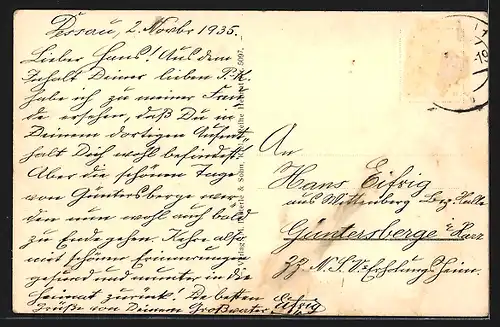 Dessau, 2. Novbr 1935.
Lieber Hans! Aus dem
Inhalt Deiner lieben P.-K.
habe ich zu meiner Freu-
de ersehen, daß Du in
Deinem dortigen Aufent-
halt Dich wohl befindest.
Aber die schönen Tage
von Güntersberge wer-
den nun wohl auch bald
zu Ende gehen. Kehre also
mit schönen Erinnerungen
gesund und munter in die
Heimat zurück! Die besten
Grüße von Deinem Großvater Eifrig
An
Hans Eifrig
aus Wittenberg Bez. Halle
Güntersberge i. Harz
N.S.V. Erholungsheim.